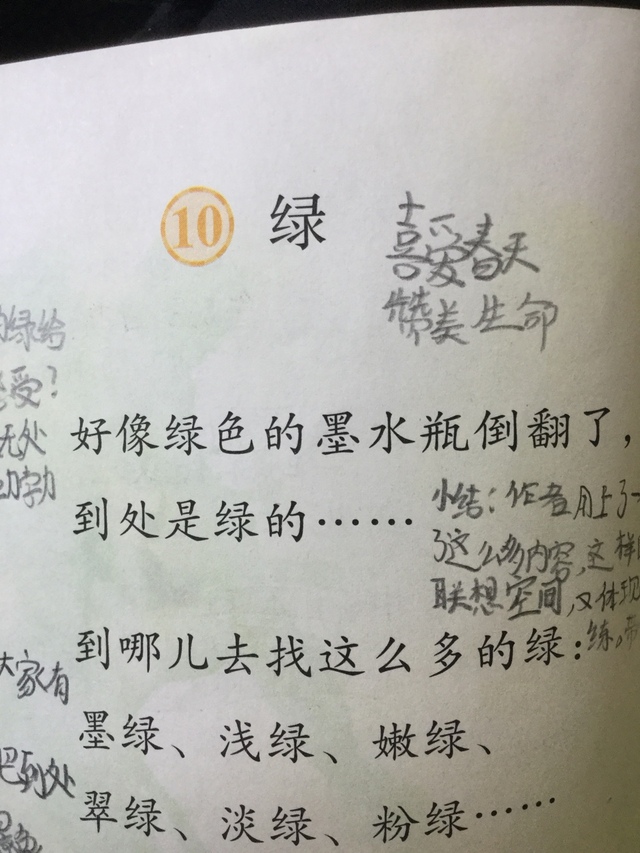 10 绿
喜爱春天
赞美生命
的绿给
受？
无处
好像绿色的墨水瓶倒翻了，
到处是绿的……
小结：作者用上了一
了这么多内容，这样
联想空间，又体现
练。带
到哪儿去找这么多的绿：
大家有
墨绿、浅绿、嫩绿、
把到处
翠绿、淡绿、粉绿……